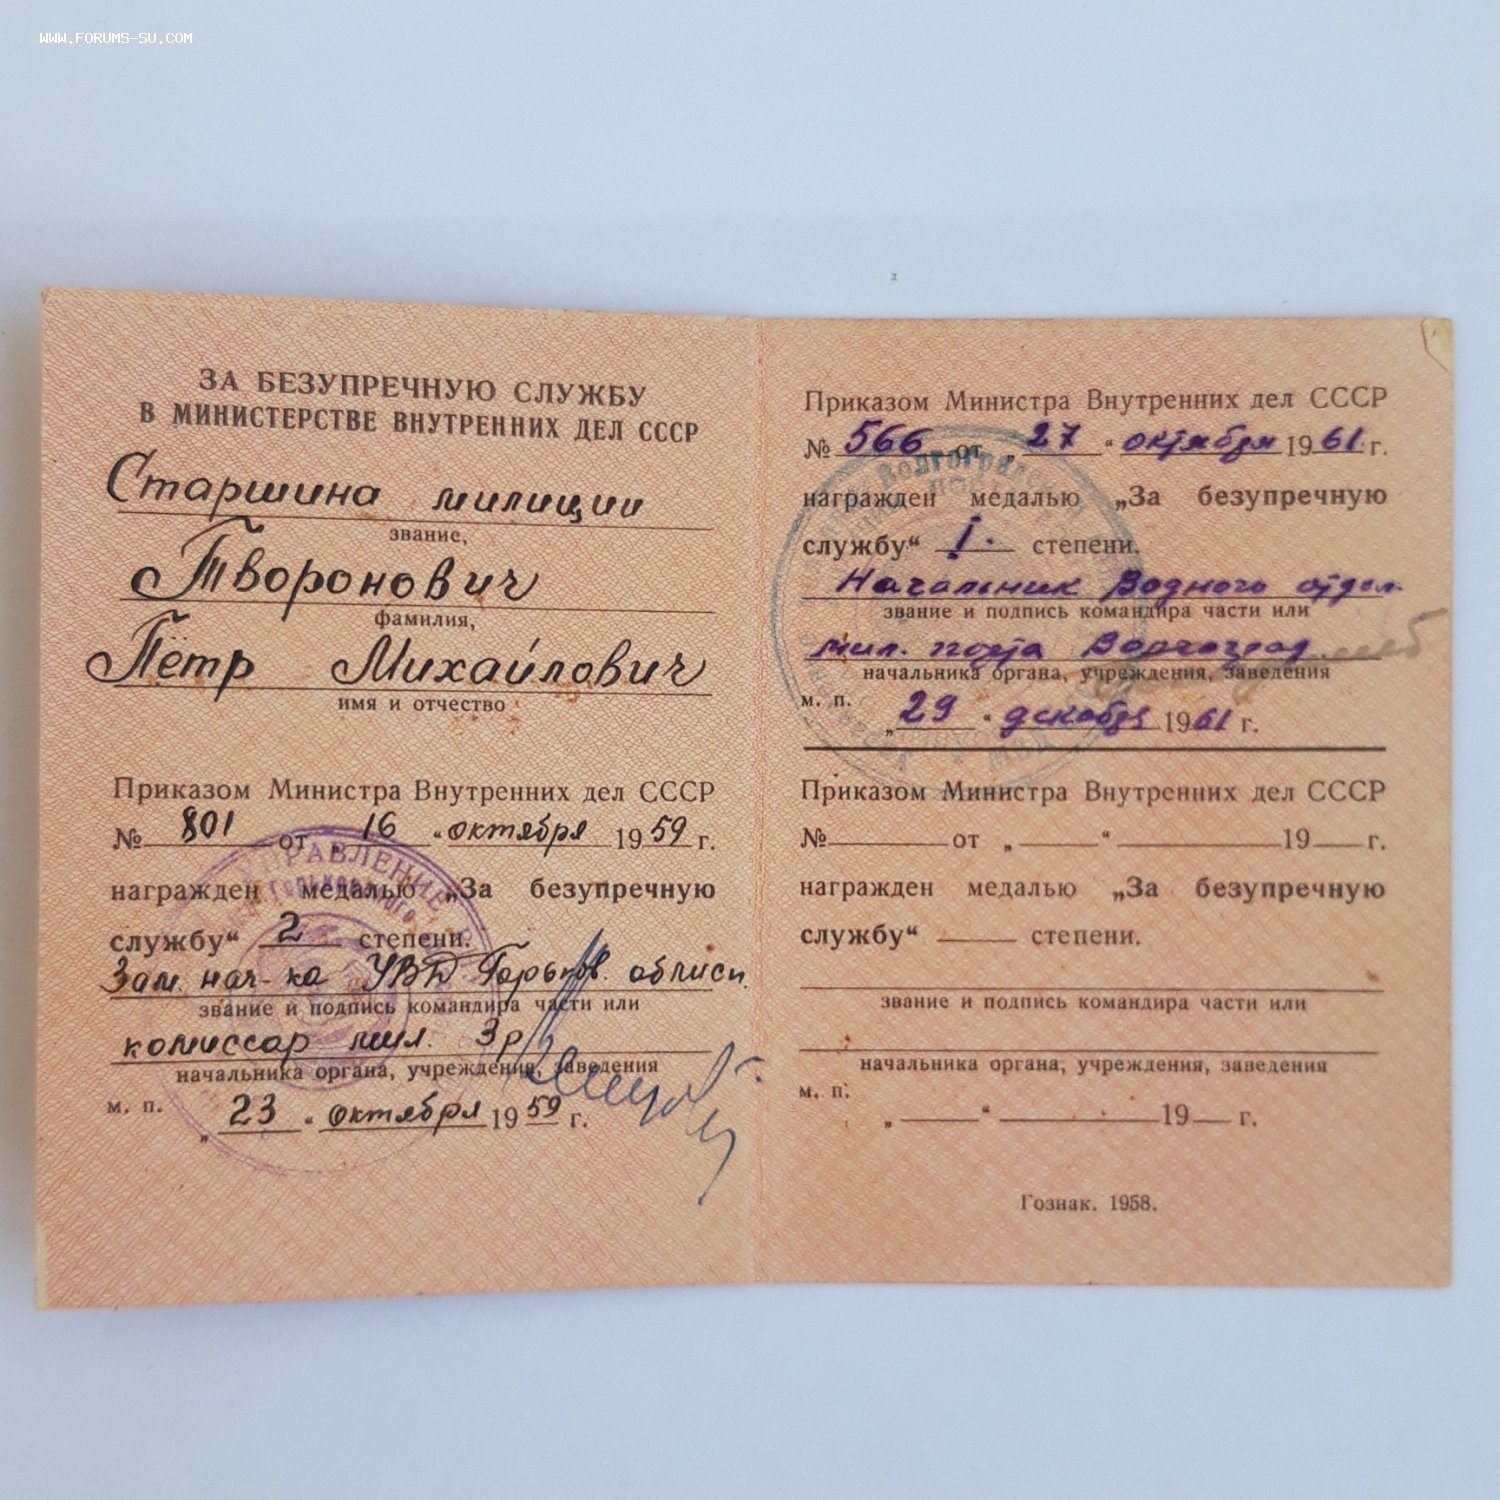 WWW.FORUMS-SU.COM
ЗА БЕЗУПРЕЧНУЮ СЛУЖБУ
В МИНИСТЕРСТВЕ ВНУТРЕННИХ ДЕЛ СССР
Старшина милиции
звание,
Творонович
фамилия,
Пётр Михайлович
имя и отчество
Приказом Министра Внутренних дел СССР
№ 801 от „16“ октября 1959 г.
награжден медалью „За безупречную
службу“ 2 степени.
Зам. нач-ка УВД Горьков. облисп.
звание и подпись командира части или
комиссар мил. 3 р
начальника органа, учреждения, заведения
м. п.
„23“ октября 1959 г.
Приказом Министра Внутренних дел СССР
№ 566 от „27“ октября 1961 г.
награжден медалью „За безупречную
службу“ I. степени.
Начальник Водного отдел.
звание и подпись командира части или
мил. порта Волгоград
начальника органа, учреждения, заведения
м. п.
„29“ декабря 1961 г.
Приказом Министра Внутренних дел СССР
№ от „ “ 19 г.
награжден медалью „За безупречную
службу“ степени.
звание и подпись командира части или
начальника органа, учреждения, заведения
м. п.
„ “ 19 г.
Гознак. 1958.
УПРАВЛЕНИЕ